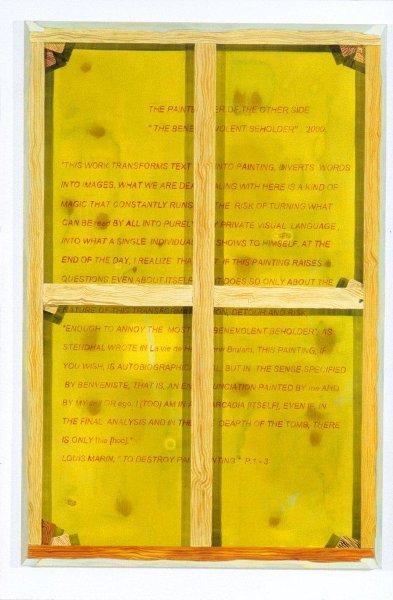 THE PAINTE ER OF THE OTHER SIDE
"THE BENE VOLENT BEHOLDER" 2000.
"THIS WORK TRANSFORMS TEXT INTO PAINTING, DIVERTS WORDS
INTO IMAGES, WHAT WE ARE DEA LING WITH HERE IS A KIND OF
MAGIC THAT CONSTANTLY RUNS THE RISK OF TURNING WHAT
CAN BE read BY ALL INTO PUREL Y PRIVATE VISUAL LANGUAGE,
INTO WHAT A SINGLE INDIVIDUAL SHOWS TO HIMSELF. AT THE
END OF THE DAY, I REALIZE THA T IF THIS PAINTING RAISES
QUESTIONS EVEN ABOUT ITSELF DOES SO ONLY ABOUT THE
NATURE OF THIS TRANSFOR ON, DETOUR AND RISK
"ENOUGH TO ANNOY THE MOST BENEVOLENT BEHOLDER", AS
STENDHAL WROTE IN La vie de H enri Brulard, THIS PAINTING, IF
YOU WISH, IS AUTOBIOGRAPHIC AL, BUT IN THE SENSE SPECIFIED
BY BENVENISTE, THAT IS, AN EN UNCIATION PAINTED BY me AND
BY MY OR ego. I [TOO] AM IN A ARCADIA [ITSELF], EVEN IF, IN
THE FINAL ANALYSIS AND IN THE DEAPTH OF THE TOMB, THERE
IS ONLY this [hoc]."
LOUIS MARIN, " TO DESTROY PAI NTING " P.1 - 3